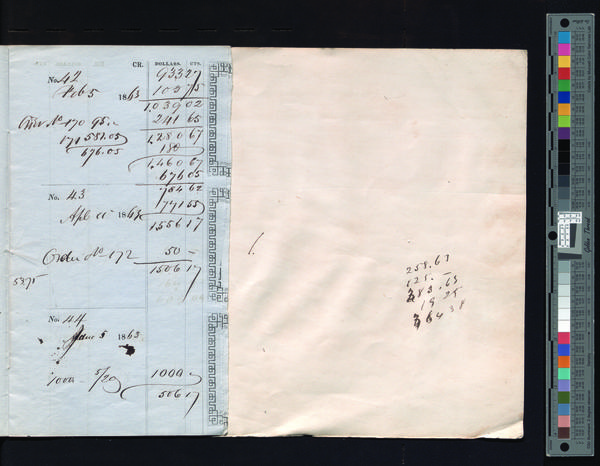 CR. DOLLARS. CTS.
No. 42 933 27
Feb 5 1863 105 75
1,039 02
241 65
No 170 95.- 1,280 67
171 581.05 180
676.05 1,460 67
676 05
784 62
No. 43 771 55
Apl 11 1863 1556 17
Order No 172 50 -
1506 17
5375
No. 44
June 5 1863
1000 - 5/20 1000 -
506 17
258.63
125.-
383.63
19 25
364 38